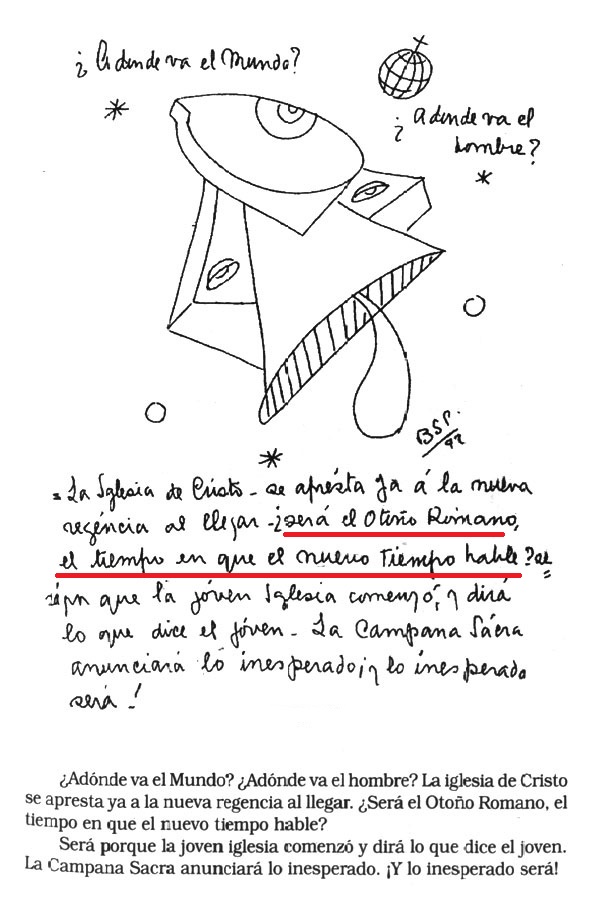 ¿Adonde va el Mundo?
¿Adonde va el
hombre?
BSP.
92
La Iglesia de Cristo - se apresta ya á la nueva
regéncia al llegar - ¿será el Otoño Romano,
el tiempo en que el nuevo Tiempo hable? se
que la jóven Iglesia comenzó, y dirá
lo que dice el jóven - La Campana Sácra
anunciará lo inesperado ¡y lo inesperado
será!
¿Adónde va el Mundo? ¿Adónde va el hombre? La iglesia de Cristo
se apresta ya a la nueva regencia al llegar. ¿Será el Otoño Romano, el
tiempo en que el nuevo tiempo hable?
Será porque la joven iglesia comenzó y dirá lo que dice el joven.
La Campana Sacra anunciará lo inesperado. ¡Y lo inesperado será!